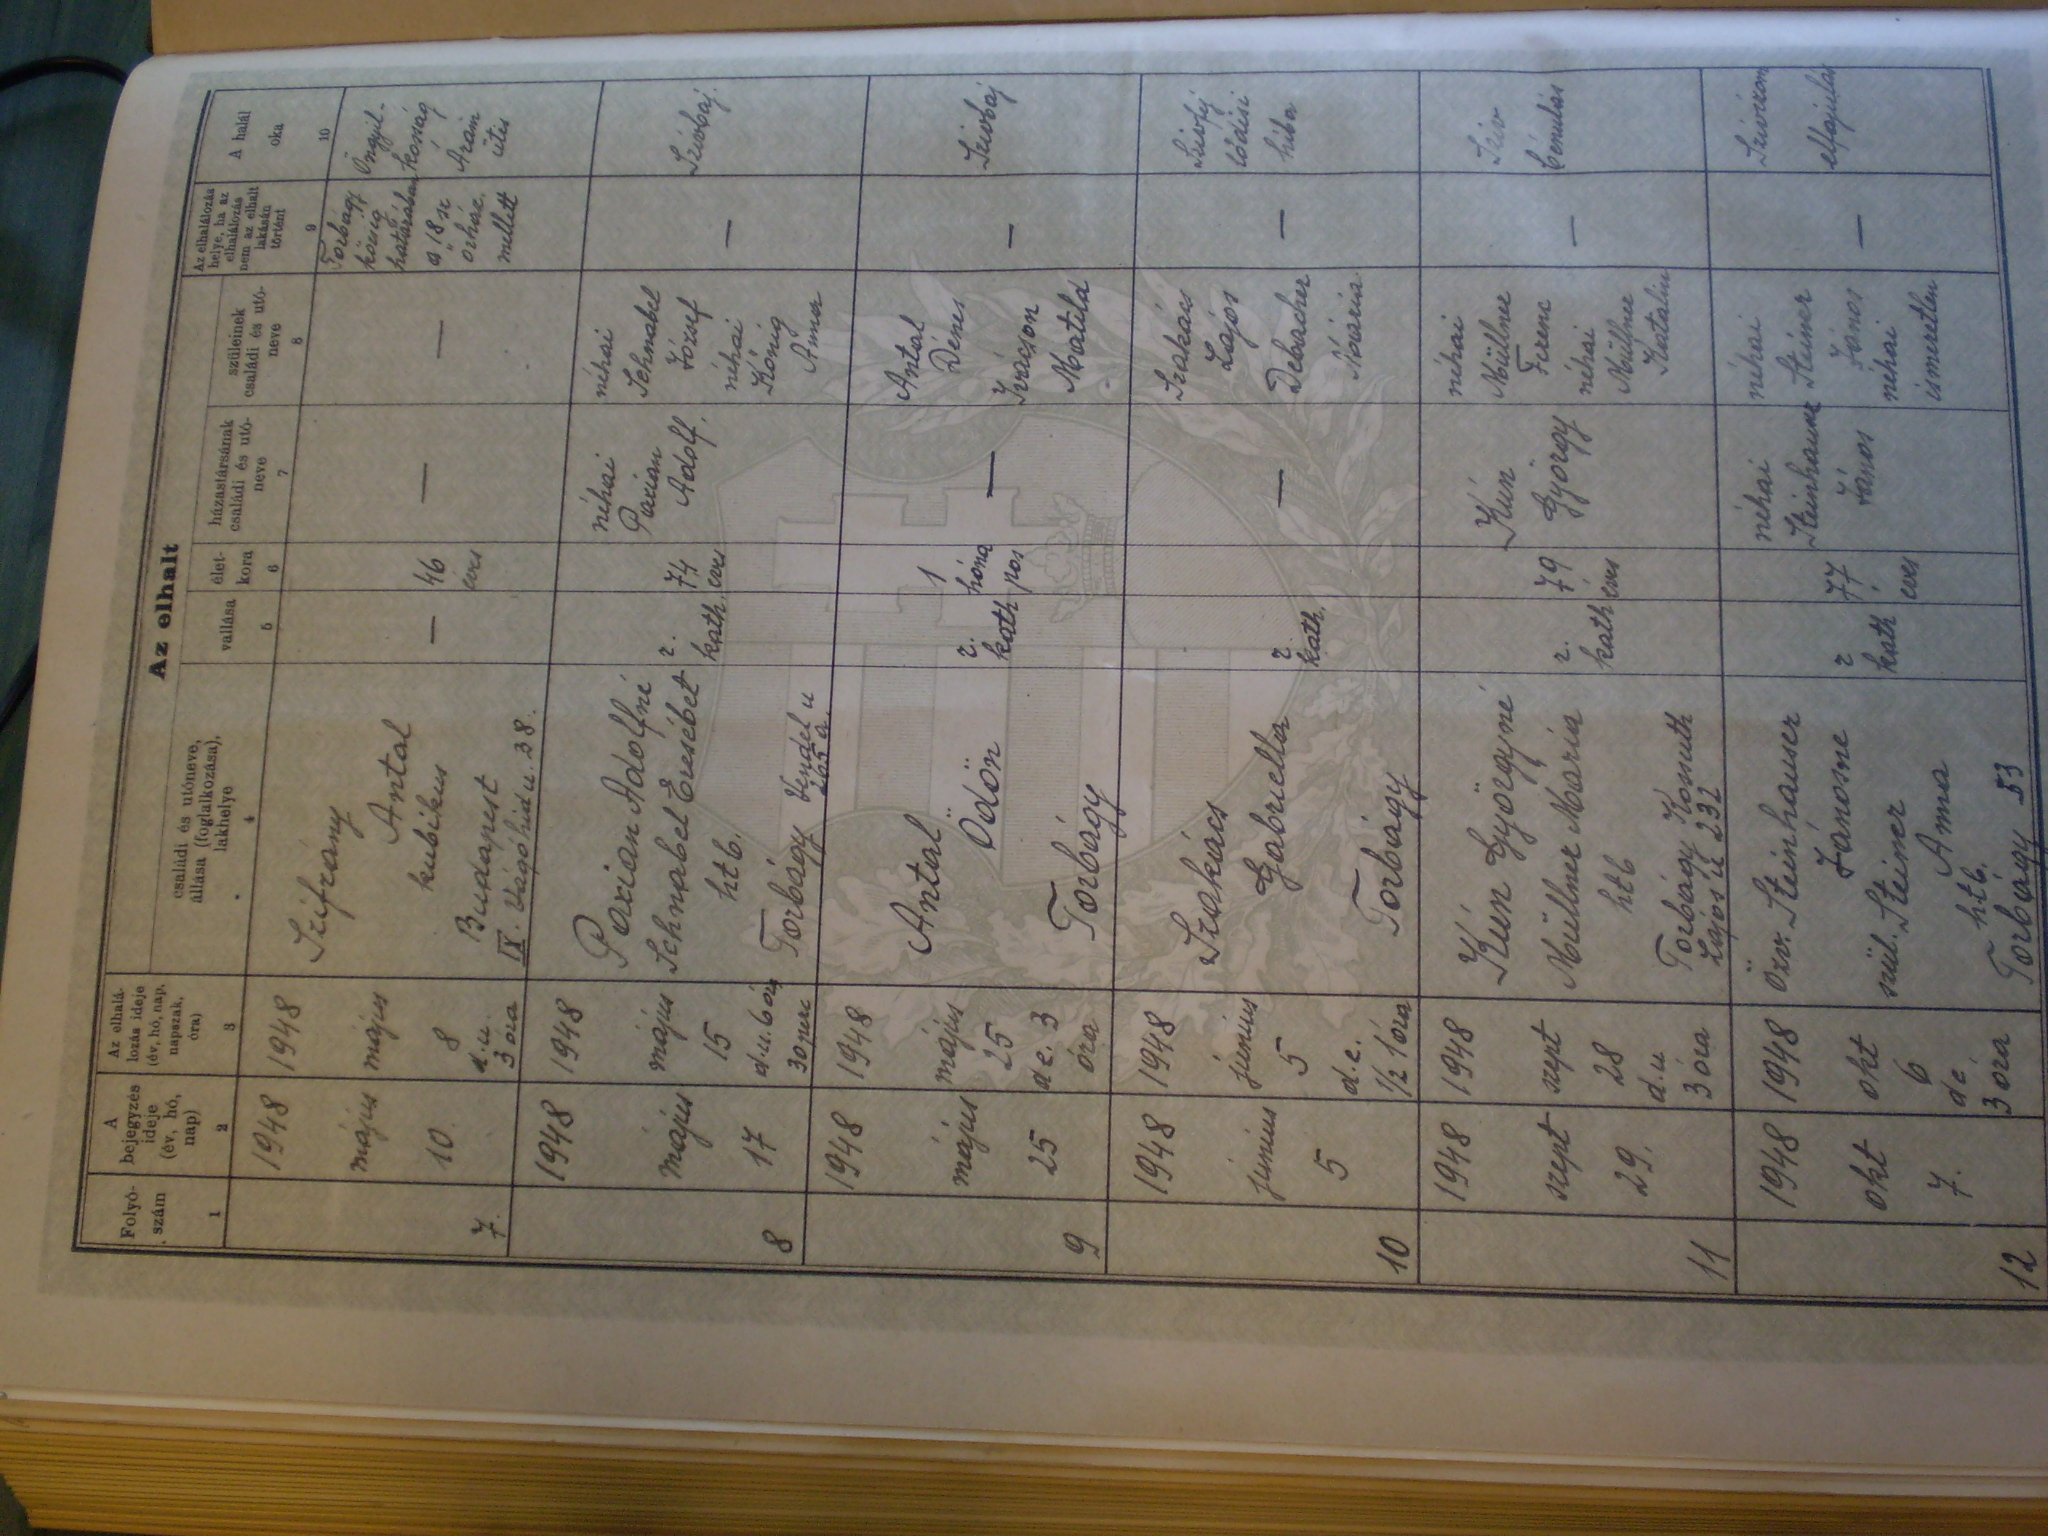 Az elhalt
Folyó-
szám
A
bejegyzés
ideje
(év, hó,
nap)
Az elhalá-
lozás ideje
(év, hó, nap,
napszak,
óra)
családi és utóneve,
állása (foglalkozása),
lakhelye
vallása
élet-
kora
házastársának
családi és utó-
neve
szüleinek
családi és utó-
neve
Az elhalálozás
helye, ha az
elhalálozás
nem az elhalt
lakásán
történt
A halál
oka
1
2
3
4
5
6
7
8
9
10
7.
1948
május
10.
1948
május
8
d.u.
3 óra
Szifrány
Antal
kubikus
Budapest
IX. Vágóhid u. 38.
—
46
éves
—
—
Torbágy
község
határában
a 18 sz
őrház
mellett
Öngyil-
kosság
Áram
ütés
8
1948
május
17
1948
május
15
d.u. 6 óra
30 perc
Paxian Adolfné
Schnabel Erzsébet
htb.
Torbágy Vendel u
265 a.
r.
kath.
74
éves
néhai
Paxian
Adolf.
néhai
Schnabel
József
néhai
König
Anna
—
Szivbaj.
9
1948
május
25
1948
május
25
de. 3
óra
Antal
Ödön
Torbágy
r.
kath
1
hóna
pos
—
Antal
Dénes
Ivácson
Matild
—
Szivbaj
10
1948
junius
5
1948
junius
5
d.e.
1/2 1 óra
Szakács
Gabriella
Torbágy
r.
kath.
—
Szakács
Lajos
Debacher
Mária
—
Szivfej
lődési
hiba
11
1948
szept
29.
1948
szept
28
d.u
3 óra
Kún Györgyné
Müllner Mária
htb
Torbágy Kossuth
Lajos u 232
r.
kath
79
éves
Kún
György
néhai
Müllner
Ferenc
néhai
Müllner
Katalin
—
Sziv
bénulás
12
1948
okt
7.
1948
okt
6
de
3 óra
Özv. Steinhauser
Jánosne
szül. Steiner
Anna
htb.
Torbágy 53
r
kath
77
éves
néhai
Steinhauser
János
néhai
Steiner
János
néhai
ismeretlen
—
Szivizom
elfajulás